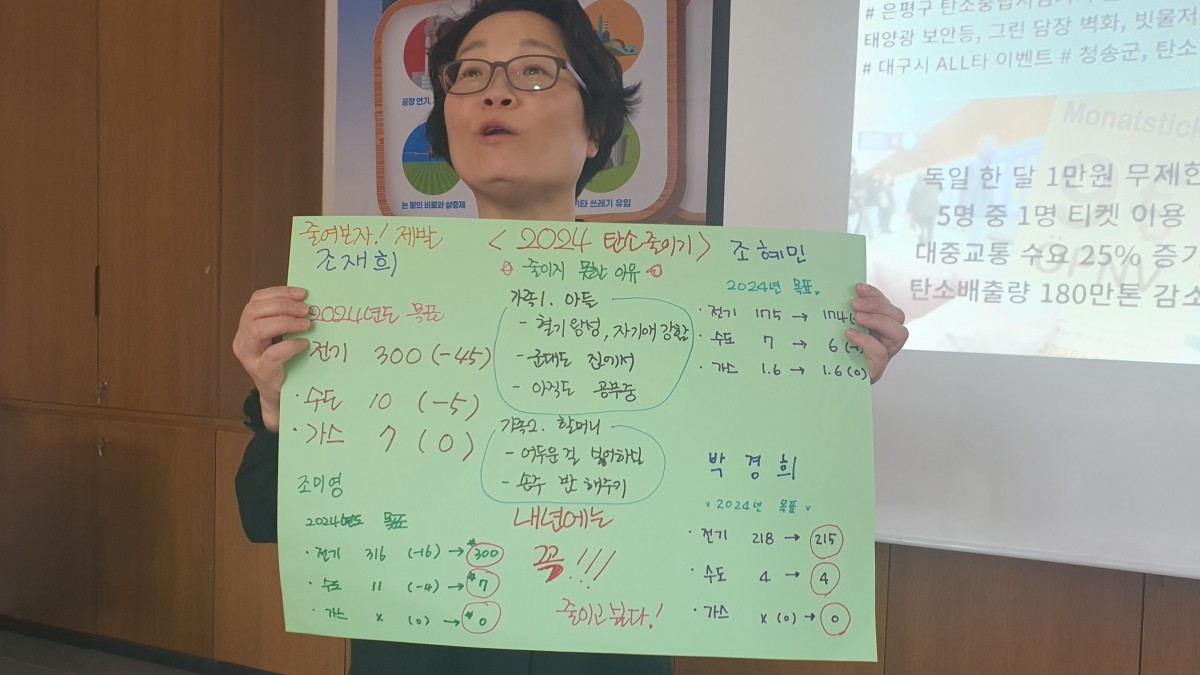 공장 연기,
논 밭의 비료와 살충제
기타 쓰레기 유입
# 은평구 탄소중립
태양광 보안등, 그린 담장 벽화, 빗물저
# 대구시 ALL타 이벤트 # 청송군, 탄소
Monatstick
독일 한 달 1만원 무제한
5명 중 1명 티켓 이용
대중교통 수요 25% 증가
탄소배출량 180만톤 감소
ÖPNV
줄여보자! 제발
조재희
2024년도 목표
· 전기 300 (-45)
· 수도 10 (-5)
· 가스 7 (0)
조미영
2024년도 목표
· 전기 316 (-16) → 300
· 수도 11 (-4) → 7
· 가스 x (0) → 0
< 2024 탄소줄이기 >
줄이지 못한 이유
가족1. 아들
- 혈기왕성, 자기애 강함
- 군대도 집에서
- 아직도 공부중
가족2. 할머니
- 어두운걸 싫어하심
- 손주 밥 해주기
내년에는
꼭!!!
줄이고 싶다!
조혜민
2024년 목표
· 전기 175 → 174
· 수도 7 → 6
· 가스 1.6 → 1.6 (0)
박경희
2024년 목표
· 전기 218 → 215
· 수도 4 → 4
· 가스 x (0) → 0